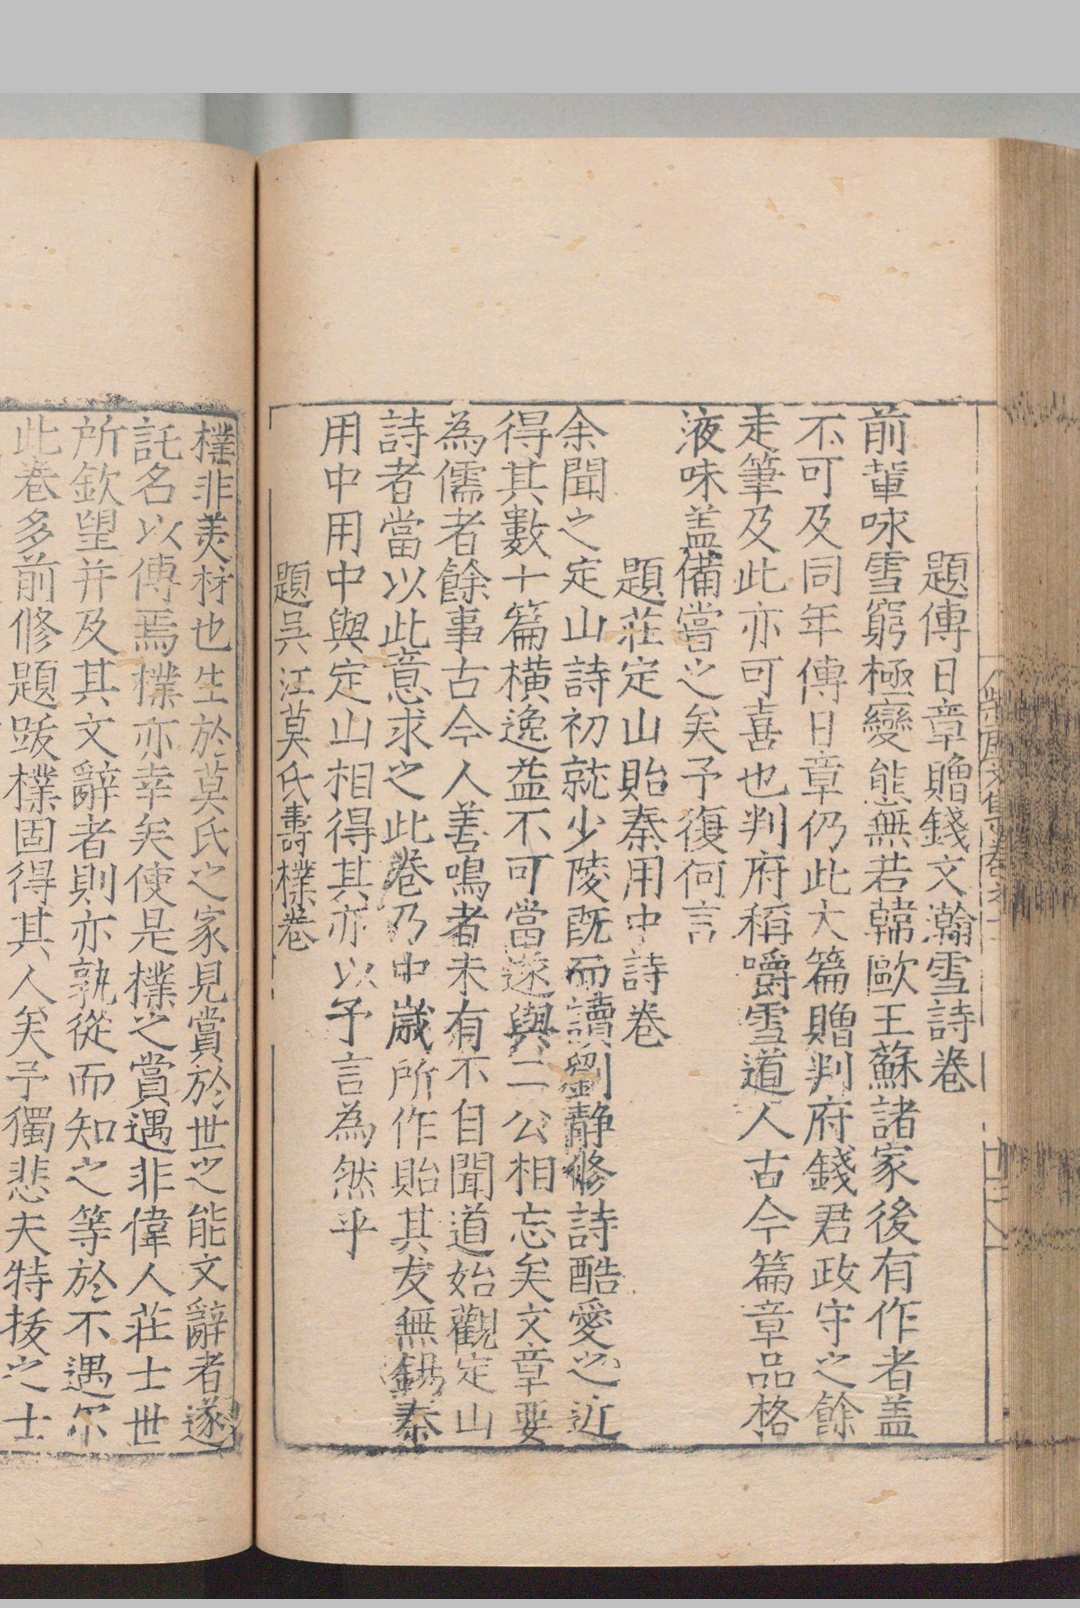 題傅日章贈錢文瀚雪詩卷
前輩咏雪窮極變態無若韓歐王蘇諸家後有作者盖
不可及同年傅日章仍此大篇贈判府錢君政守之餘
走筆及此亦可喜也判府稱嚼雪道人古今篇章品格
液味盖備嘗之矣予復何言
題莊定山貽秦用中詩卷
余聞之定山詩初就少陵既而讀劉静修詩酷愛之近
得其數十篇橫逸益不可當遂與二公相忘矣文章要
為儒者餘事古今人善鳴者未有不自聞道始觀定山
詩者當以此意求之此卷乃中嵗所作貽其友無錫秦
用中用中與定山相得其亦以予言為然乎
題吴江莫氏壽樸卷
樸非美材也生於莫氏之家見賞於世之能文辭者遂
託名以傳焉樸亦幸矣使是樸之賞遇非偉人莊士世
所欽望并及其文辭者則亦孰從而知之等於不遇尔
此卷多前修題跋樸固得其人矣予獨悲夫特抜之士